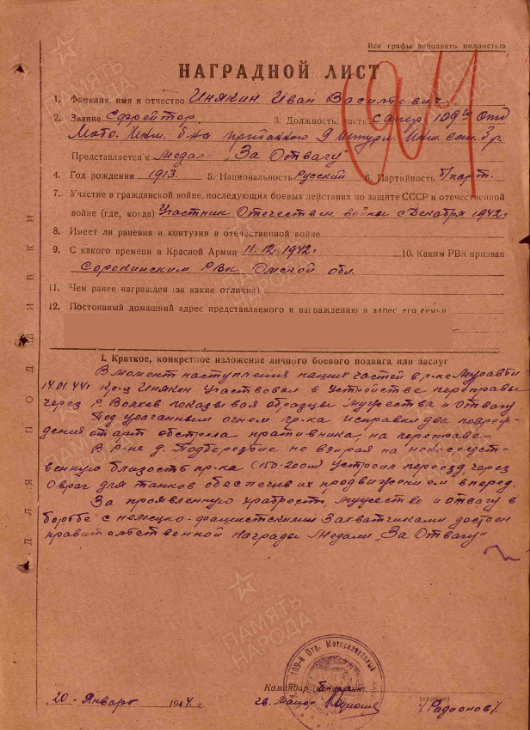 Все графы заполнять полностью
НАГРАДНОЙ ЛИСТ
1. Фамилия, имя и отчество Инякин Иван Васильевич
2. Звание Ефрейтор 3. Должность, часть Сапер 109го Отд
Мото. Инж. б-на приданного 9 штурм. Инж. бр.
Представляется к медали "За Отвагу"
4. Год рождения 1913 5. Национальность Русский 6. Партийность б/парт.
7. Участие в гражданской войне, последующих боевых действиях по защите СССР и отечественной
войне (где, когда) Участник Отечествен войны с Декабря 1942г
8. Имеет ли ранения и контузии в отечественной войне
9. С какого времени в Красной Армии 11.12.1942г 10. Каким РВК призван
Сорокинским РВК Омской обл.
11. Чем ранее награжден (за какие отличия)
12. Постоянный домашний адрес представляемого к награждению и адрес его семьи
I. Краткое, конкретное изложение личного боевого подвига или заслуг
В момент наступления наших частей в р-не
14.01.44г Кр-ц Инякин Участвовал в Устройстве переправы
через р. Волхов показывая образцы мужества и Отвагу
под ураганным огнем пр-ка исправил два повреж-
дения от арт обстрела противника, на переправе.
В р-не д. Подберезье не взирая на непосредст-
венную близость пр-ка (150-200м) устроил переезд через
Овраг для танков обеспечив их продвижением вперед.
За проявленную храбрость, мужество и отвагу в
борьбе с немецко-фашистскими захватчиками достоен
правительственной награды Медали "За Отвагу"
ДЛЯ ПОДШИВКИ
ПАМЯТЬ
НАРОДА
109-й Отд. Моторизованный
Командир
гв. Майор
/Радионов/
20 Января 1944 г.